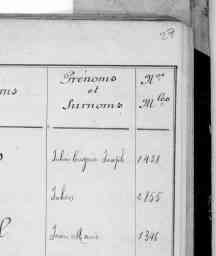 29
Prénoms Nos
ms et
Surnoms Mles
Jules Eugène Joseph 1428
Julien 2155
Jean Marie 1346